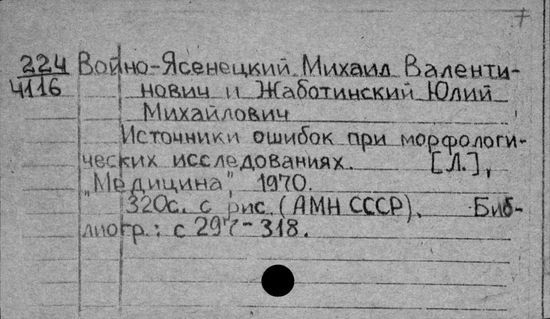 7
224 Войно-Ясенецкий Михаил Валенти-
4116 нович и Жаботинский Юлий
Михайлович
Источники ошибок при морфологи-
ческих исследованиях. [Л.],
"Медицина", 1970.
320с. с рис. (АМН СССР). Биб-
лиогр.: с 297-318.